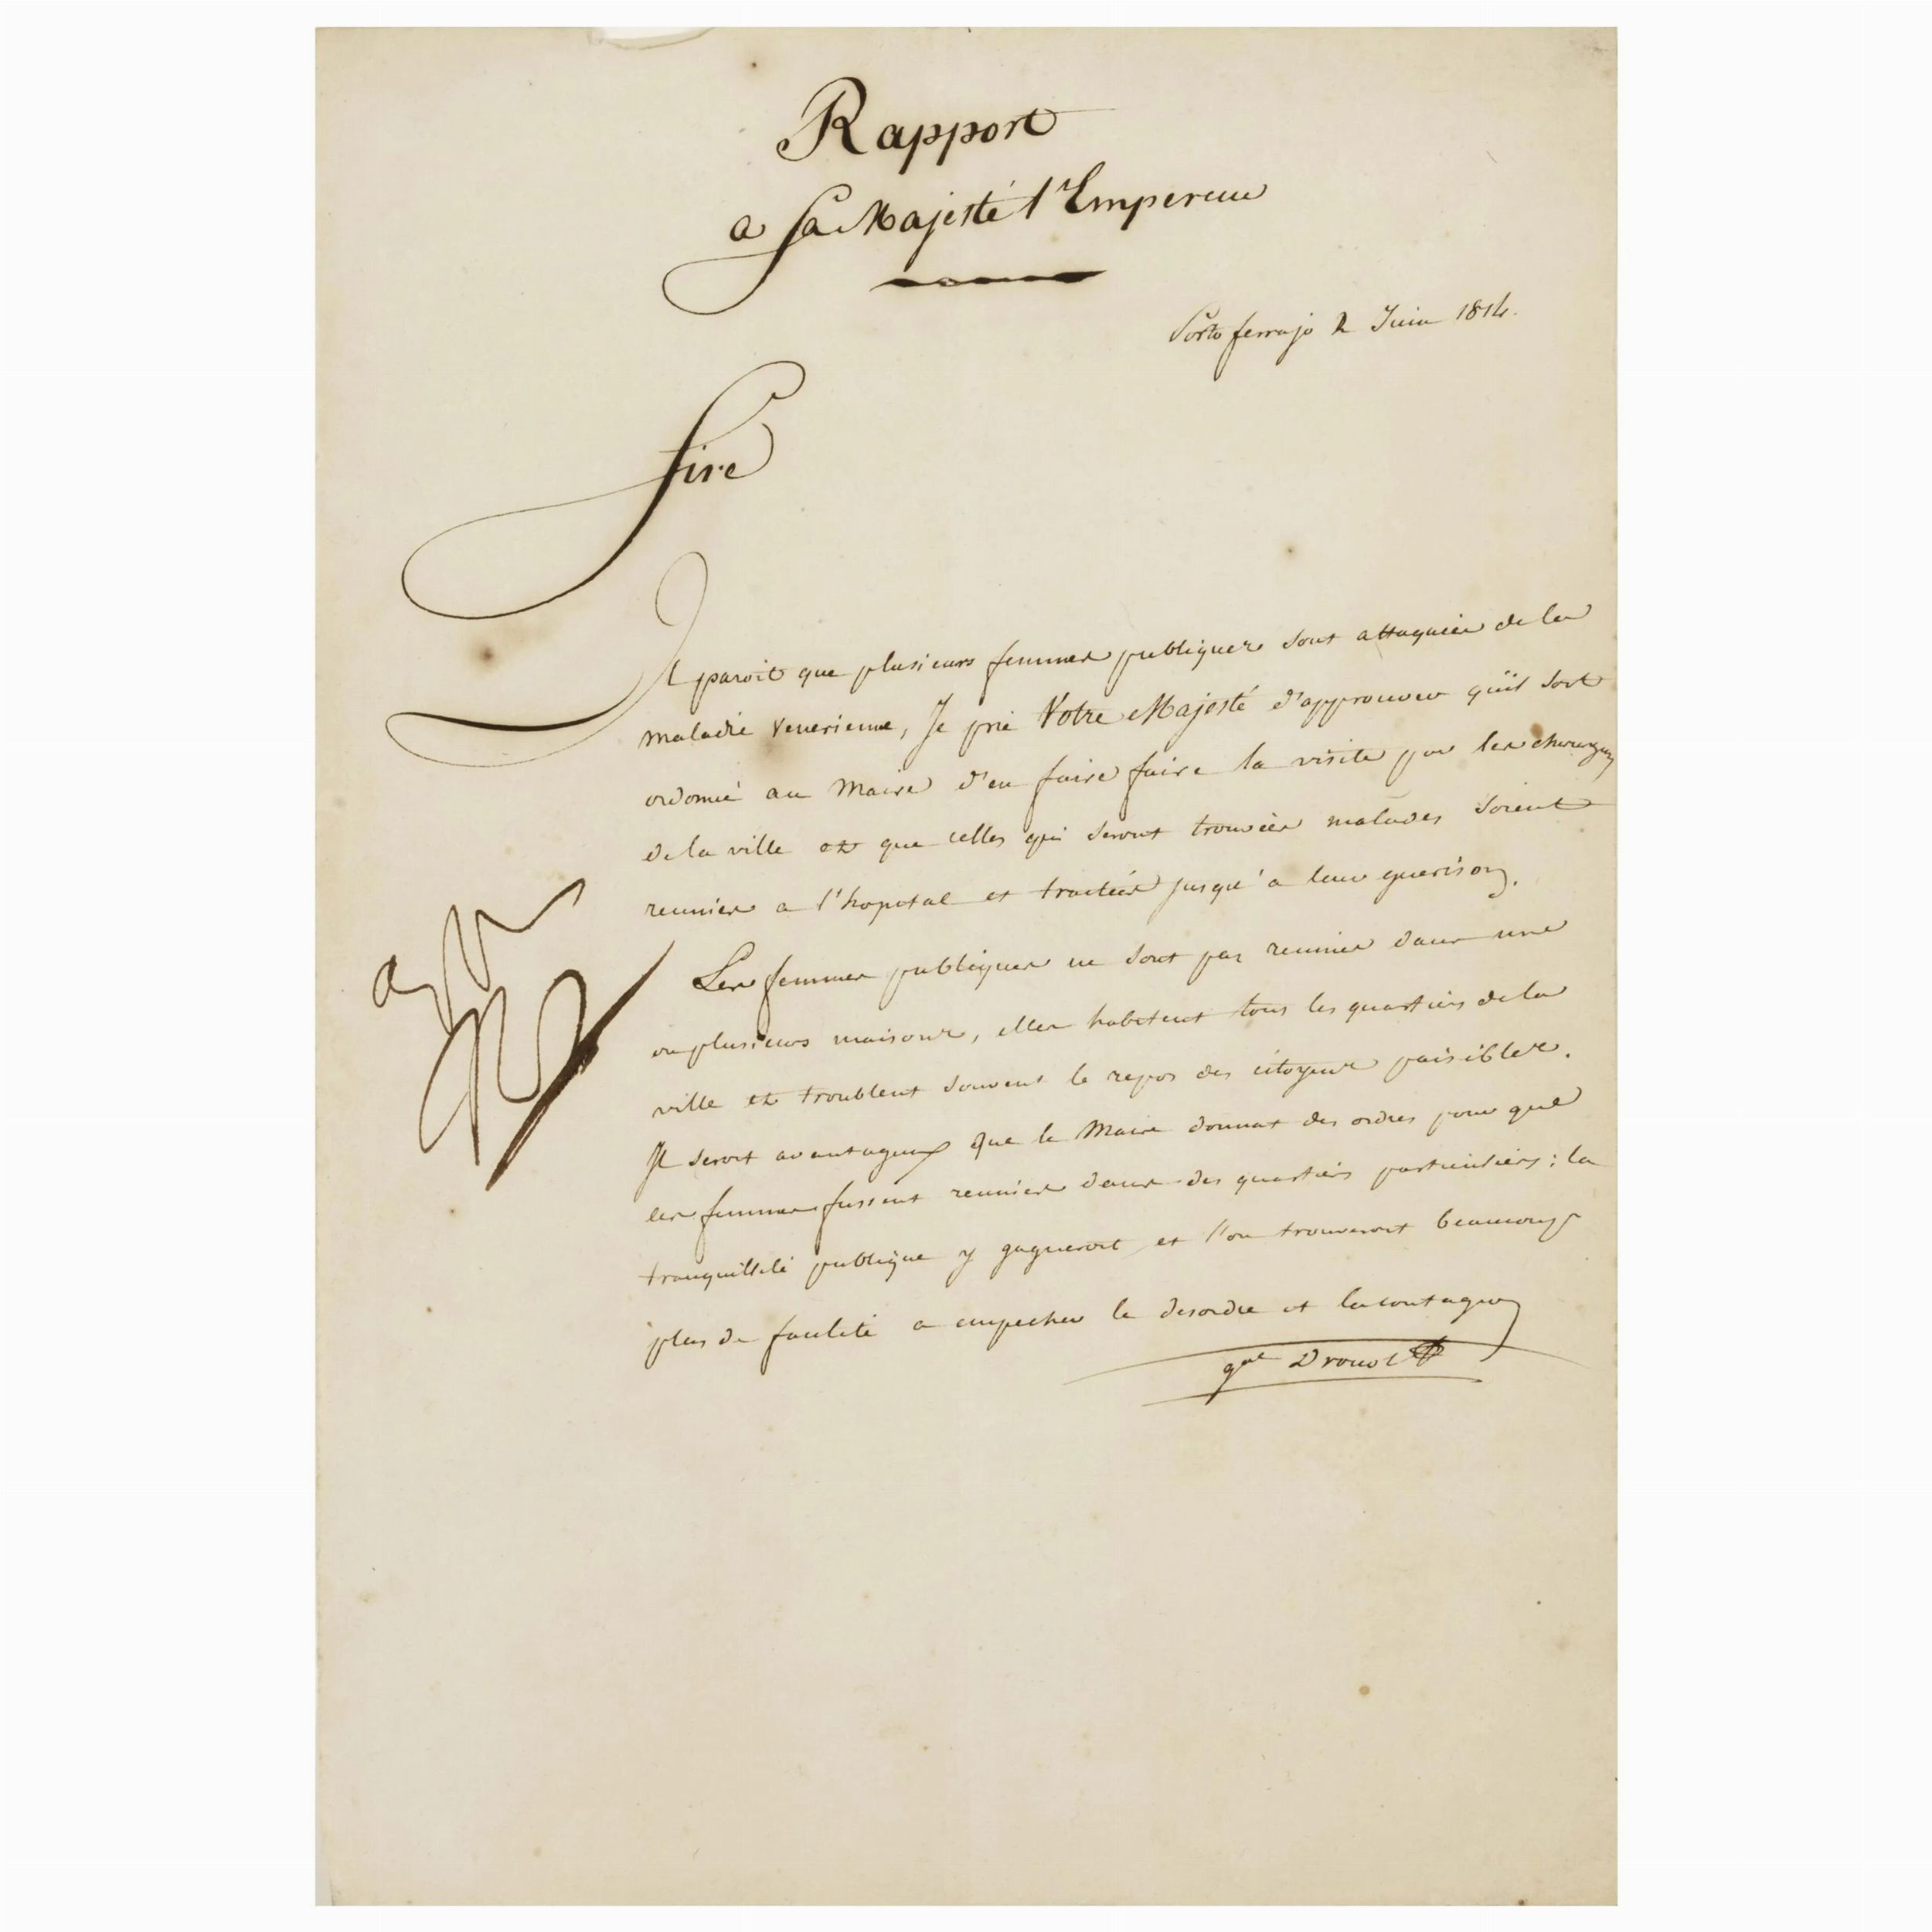 Rapport
a Sa Majesté l'Empereur
Porto ferrajo 2 Juin 1814.
Sire
Il paroit que plusieurs femmes publiques sont attaquées de la
maladie Venerienne, Je prie Votre Majesté d'approuver qu'il soit
ordonné au Maire d'en faire faire la visite par les chirurgiens
de la ville et que celles qui seront trouvées malades soient
reunies a l'hopital et traitées jusqu'a leur guerison.
Les femmes publiques ne sont pas reunies dans une
ou plusieurs maisons, elles habitent tous les quartiers de la
ville et troublent souvent le repos des citoyens paisibles.
Il seroit avantageux que le Maire donnat des ordres pour que
les femmes fussent reunies dans des quartiers particuliers; la
tranquillité publique y gagneroit et l'on trouveroit beaucoup
plus de facilité a empecher le desordre et la contagion
gal Drouot